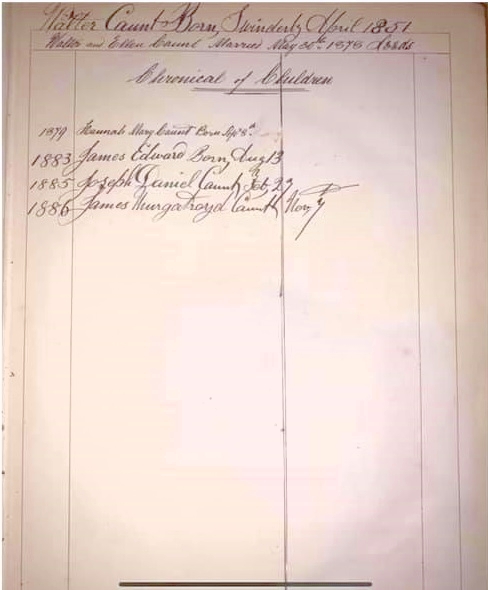 Walter Caunt Born, Swinderby April 1851
Walter and Ellen Caunt Married May 30th 1878 Leeds
Chronical of Children
1879 Hannah Mary Caunt Born Apr 8th
1883 James Edward Born, Aug 13
1885 Joseph Daniel Caunt Feb 27
1886 James Murgatroyd Caunt Nov 7